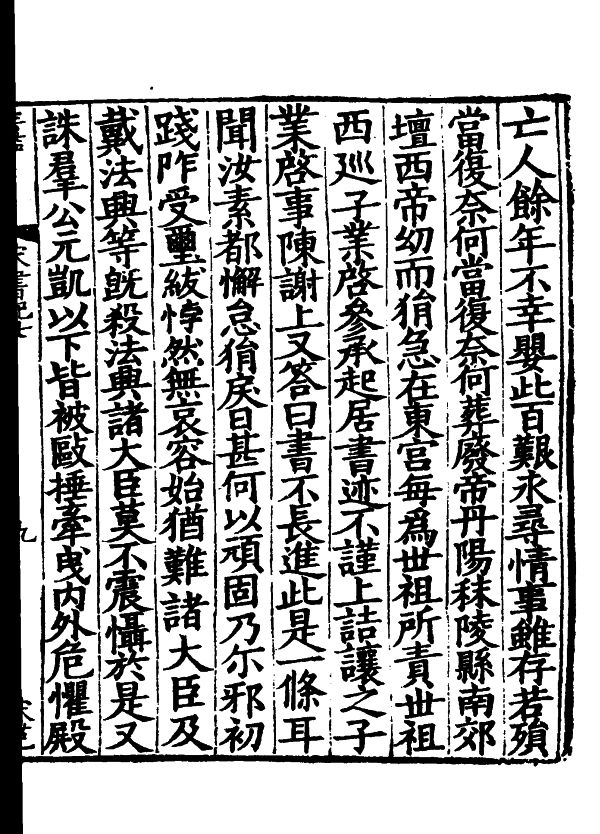 亡人餘年不幸嬰此百艱永尋情事雖存若殞
當復奈何當復奈何葬廢帝丹陽秣陵縣南郊
壇西帝幼而狷急在東宮每爲世祖所責世祖
西巡子業啓參承起居書迹不謹上詰讓之子
業啓事陳謝上又答曰書不長進此是一條耳
聞汝素都懈怠狷戾日甚何以頑固乃尓邪初
踐阼受璽紱悖然無哀容始猶難諸大臣及
戴法興等旣殺法興諸大臣莫不震懾於是又
誅羣公元凱以下皆被毆捶牽曳內外危懼殿
九